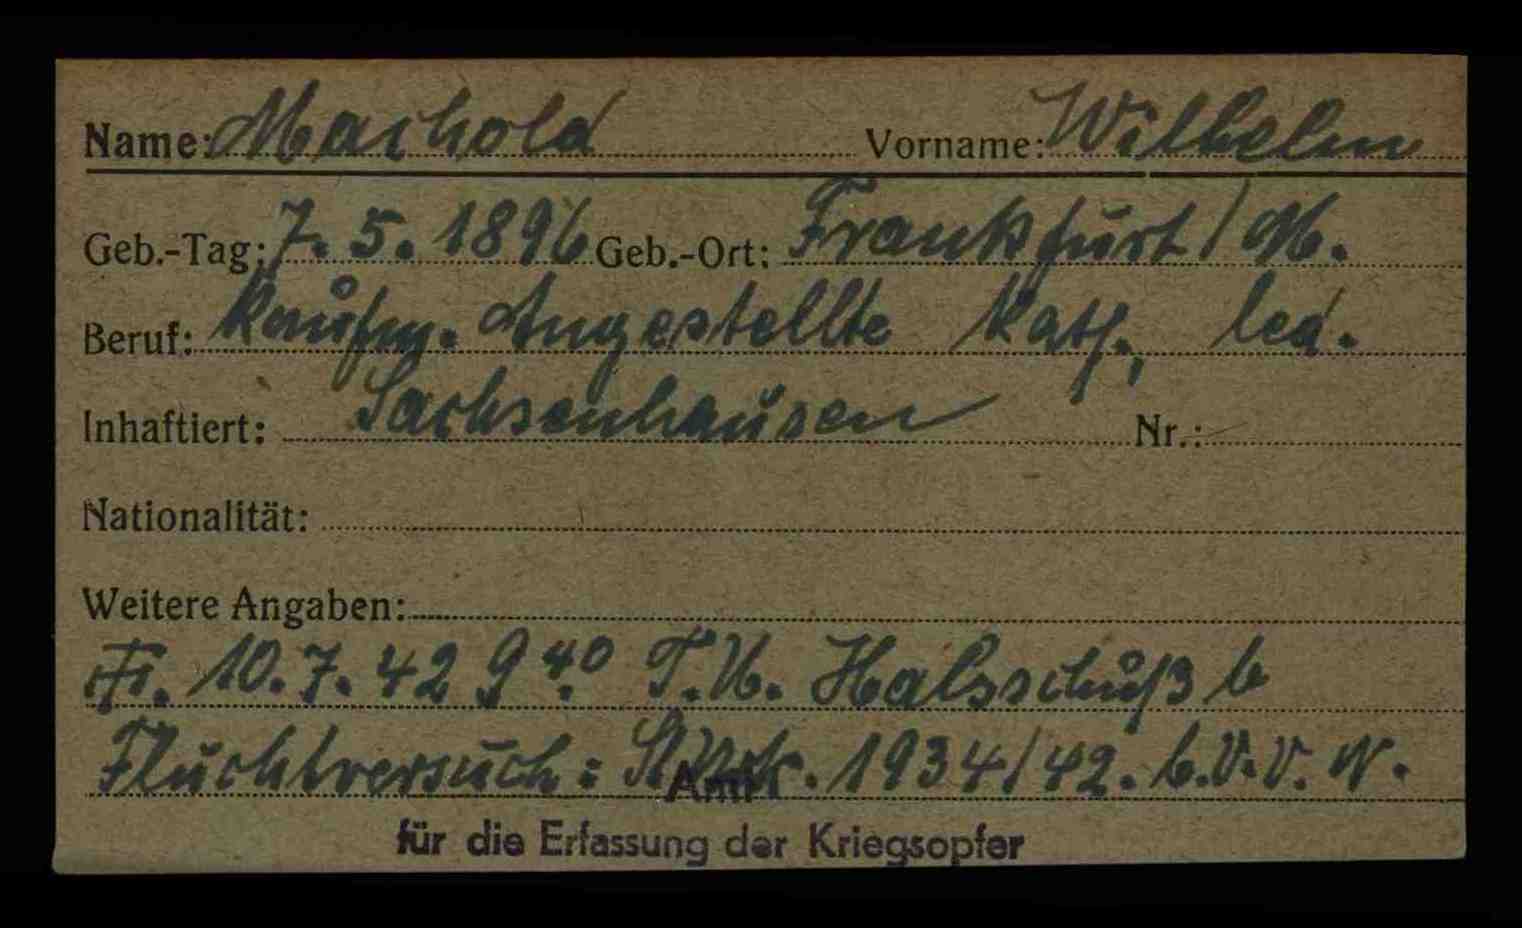 Name: Machold Vorname: Wilhelm
Geb.-Tag: 7.5.1896 Geb.-Ort: Frankfurt/M.
Beruf: Kaufm. Angestellte Kath., led.
Inhaftiert: Sachsenhausen Nr.:
Nationalität:
Weitere Angaben:
10.7.42 9 40 T.U. Halsschuß b
Fluchtversuch: 1934/42. b.V.V.N.
Amt
für die Erfassung der Kriegsopfer